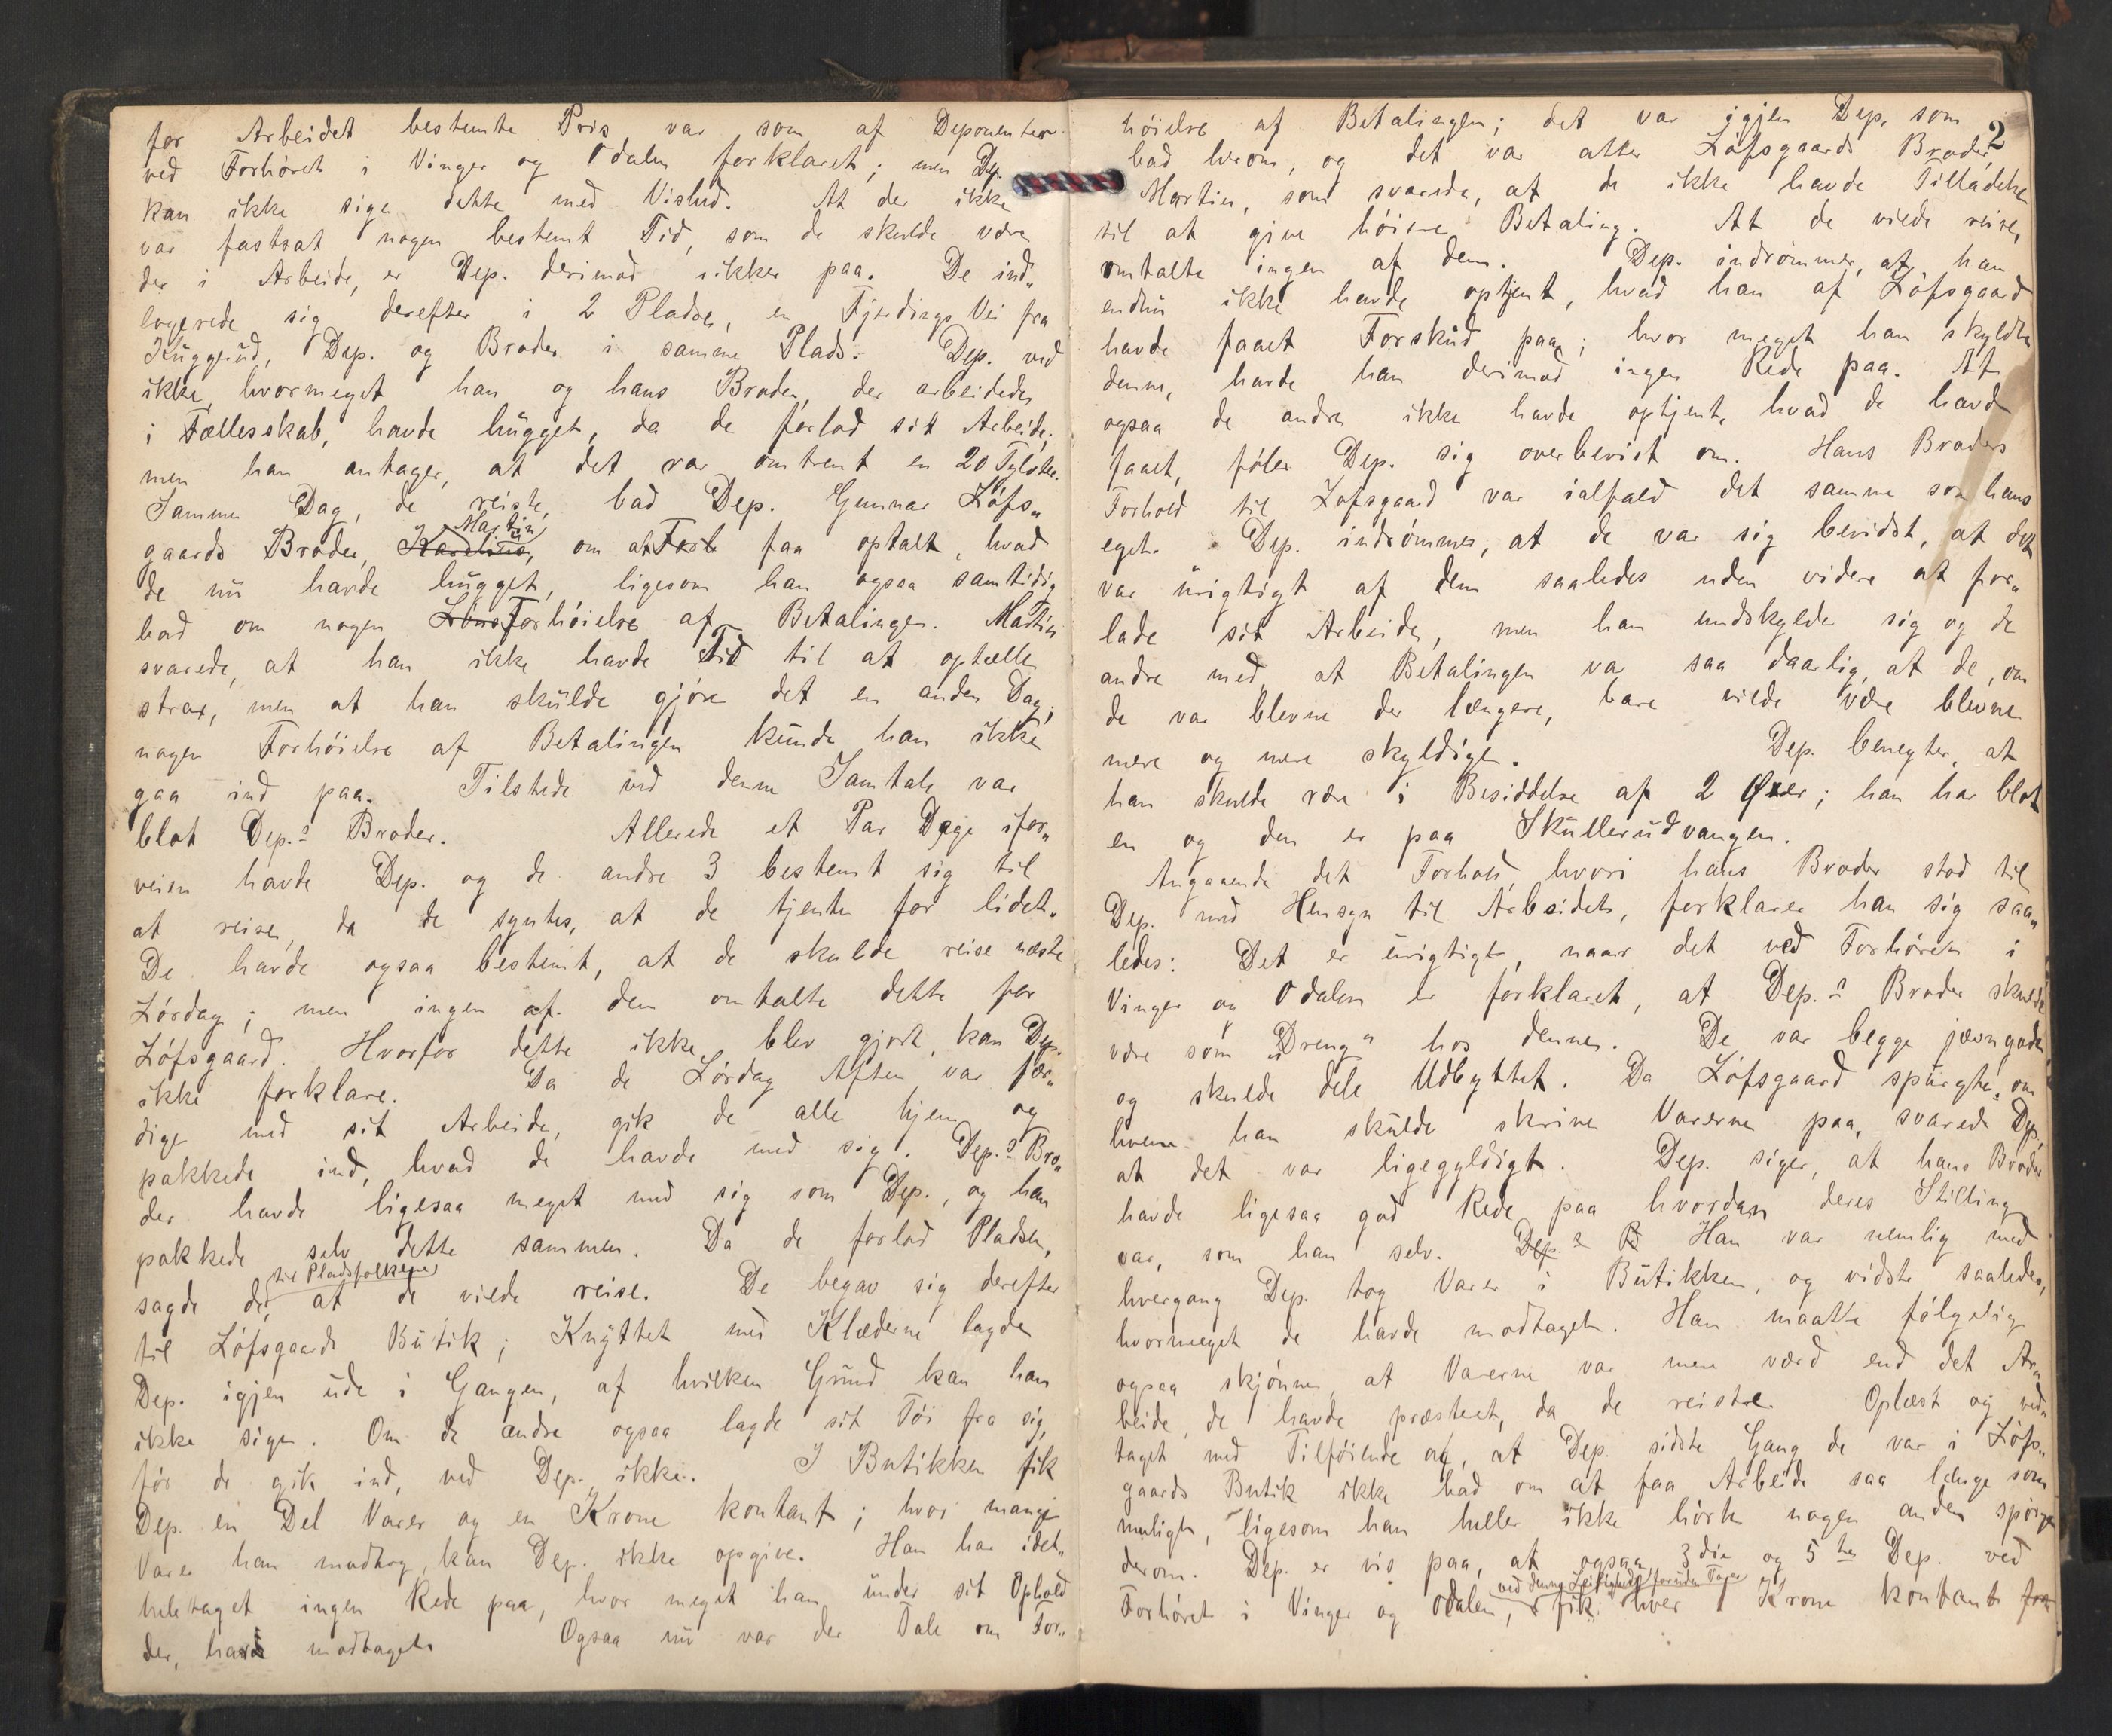 for Arbeidet bestemte Pris var som af Deponenten
ved Forhöret i Vinger og Odalen forklaret; men Dep.
kan ikke sige dette med Vished. At der ikke
var fastsat nogen bestemt Tid, som de skulde være
der i Arbeide, er Dep. derimod sikker paa. De ind„
logerede sig derefter i 2 Pladse, en Fjerdings Vei fra
Kuggerud, Dep. og Broder i samme Plads. Dep. ved
ikke, hvormeget han og hans Broder, der arbeidede
i Fællesskab, havde hugget, da de forlod sit Arbeide;
men han antager, at det var omtrent en 20 Tylster.
Samme Dag, de reiste, bad Dep. Gunnar Löfs„
Martin
gaards Broder, Karelius, om at Forh faa optalt, hvad
de nu havde hugget, ligesom han ogsaa samtidig
bad om nogen Löns Forhöielse af Betalingen. Martin
svarede, at han ikke havde Tid til at optælle
strax, men at han skulde gjöre det en anden Dag;
nogen Forhöielse af Betalingen kunde han ikke
gaa ind paa. Tilstede ved denne Samtale var
blot Dep.s Broder. Allerede et Par Dage ifor„
veien havde Dep. og de andre 3 bestemt sig til
at reise, da de syntes, at de tjente for lidet.
De havde ogsaa bestemt, at de skulde reise næste
Lördag; men ingen af dem omtalte dette for
Löfsgaard. Hvorfor dette ikke blev gjort, kan Dep.
ikke forklare. Da de Lördag Aften var fær„
dige med sit Arbeide, gik de alle hjem og
pakkede ind, hvad de havde med sig. Dep.s Bro„
der havde ligesaa meget med sig som Dep., og han
pakkede selv dette sammen. Da de forlod Pladsen,
til Pladsfolkene
sagde de, at de vilde reise. De begav sig derefter
til Löfsgaards Butik; Knyttet med Klæderne lagde
Dep. igjen ude i Gangen, af hvilken Grund kan han
ikke sige. Om de andre ogsaa lagde sit Töi fra sig,
för de gik ind, ved Dep. ikke. I Butikken fik
Dep. en Del Varer og en Krone kontant; hvor mange
Varer han modtog, kan Dep. ikke opgive. Han har idet„
heletaget ingen Rede paa, hvor meget han under sit Ophold
der, havde modtaget. Ogsaa nu var der Tale om For„
2
höielse af Betalingen; det var igjen Dep. som
bad herom, og det var atter Löfsgaards Broder,
Martin, som svarede, at de ikke havde Tilladelse
til at give höiere Betaling. At de vilde reise,
omtalte ingen af dem. Dep. indrömmer, at han
endnu ikke havde optjent, hvad han af Löfsgaard
havde faaet Forskud paa; hvor meget han skyldte
denne, havde han derimod ingen Rede paa. At
ogsaa de andre ikke havde optjent, hvad de havde
faaet, föler Dep. sig overbevist om. Hans Broders
Forhold til Löfsgaard var ialfald det samme som hans
eget. Dep. indrömmer, at de var sig bevidst, at det
var urigtigt af dem saaledes uden videre at for„
lade sit Arbeide, men han undskylder sig og de
andre med, at Betalingen var saa daarlig, at de, om
de var blevne der længere, bare vilde være blevne
mere og mere skyldige. Dep. benegter, at
han skulde være i Besiddelse af 2 Øxer; han har blot
en og den er paa Skullerudvangen.
Angaaende det Forhold, hvori hans Broder stod til
Dep. med Hensyn til Arbeidet, forklarer han sig saa„
ledes: Det er urigtigt, naar det ved Forhöret i
Vinger og Odalen er forklaret, at Dep.s Broder skulde
være som „Dreng“ hos denne. De var begge jævngode
og skulde dele Udbyttet. Da Löfsgaard spurgte, om
hvem han skulde skrive Varerne paa, svarede Dep.
at det var ligegyldigt. Dep. siger, at hans Broder
havde ligesaa god Rede paa hvordan deres Stilling
var, som han selv. Dep.s B Han var nemlig med
hvergang Dep. tog Varer i Butikken, og vidste saaledes,
hvormeget de havde modtaget. Han maatte fölgelig
ogsaa skjönne, at Varerne var mere værd end det Ar„
beide, de havde præsteret, da de reiste. Oplæst og ved„
taget med Tilföiende af, at Dep. sidste Gang de var i Löfs„
gaards Butik ikke bad om at faa Arbeide saa længe som
muligt, ligesom han heller ikke hörte nogen anden spörge
derom. Dep. er vis paa, at ogsaa 3die og 5te Dep. ved
ved denne Leilighed foruden Varer
Forhöret i Vinger og Odalen, fik hver 1 Krone kontant for